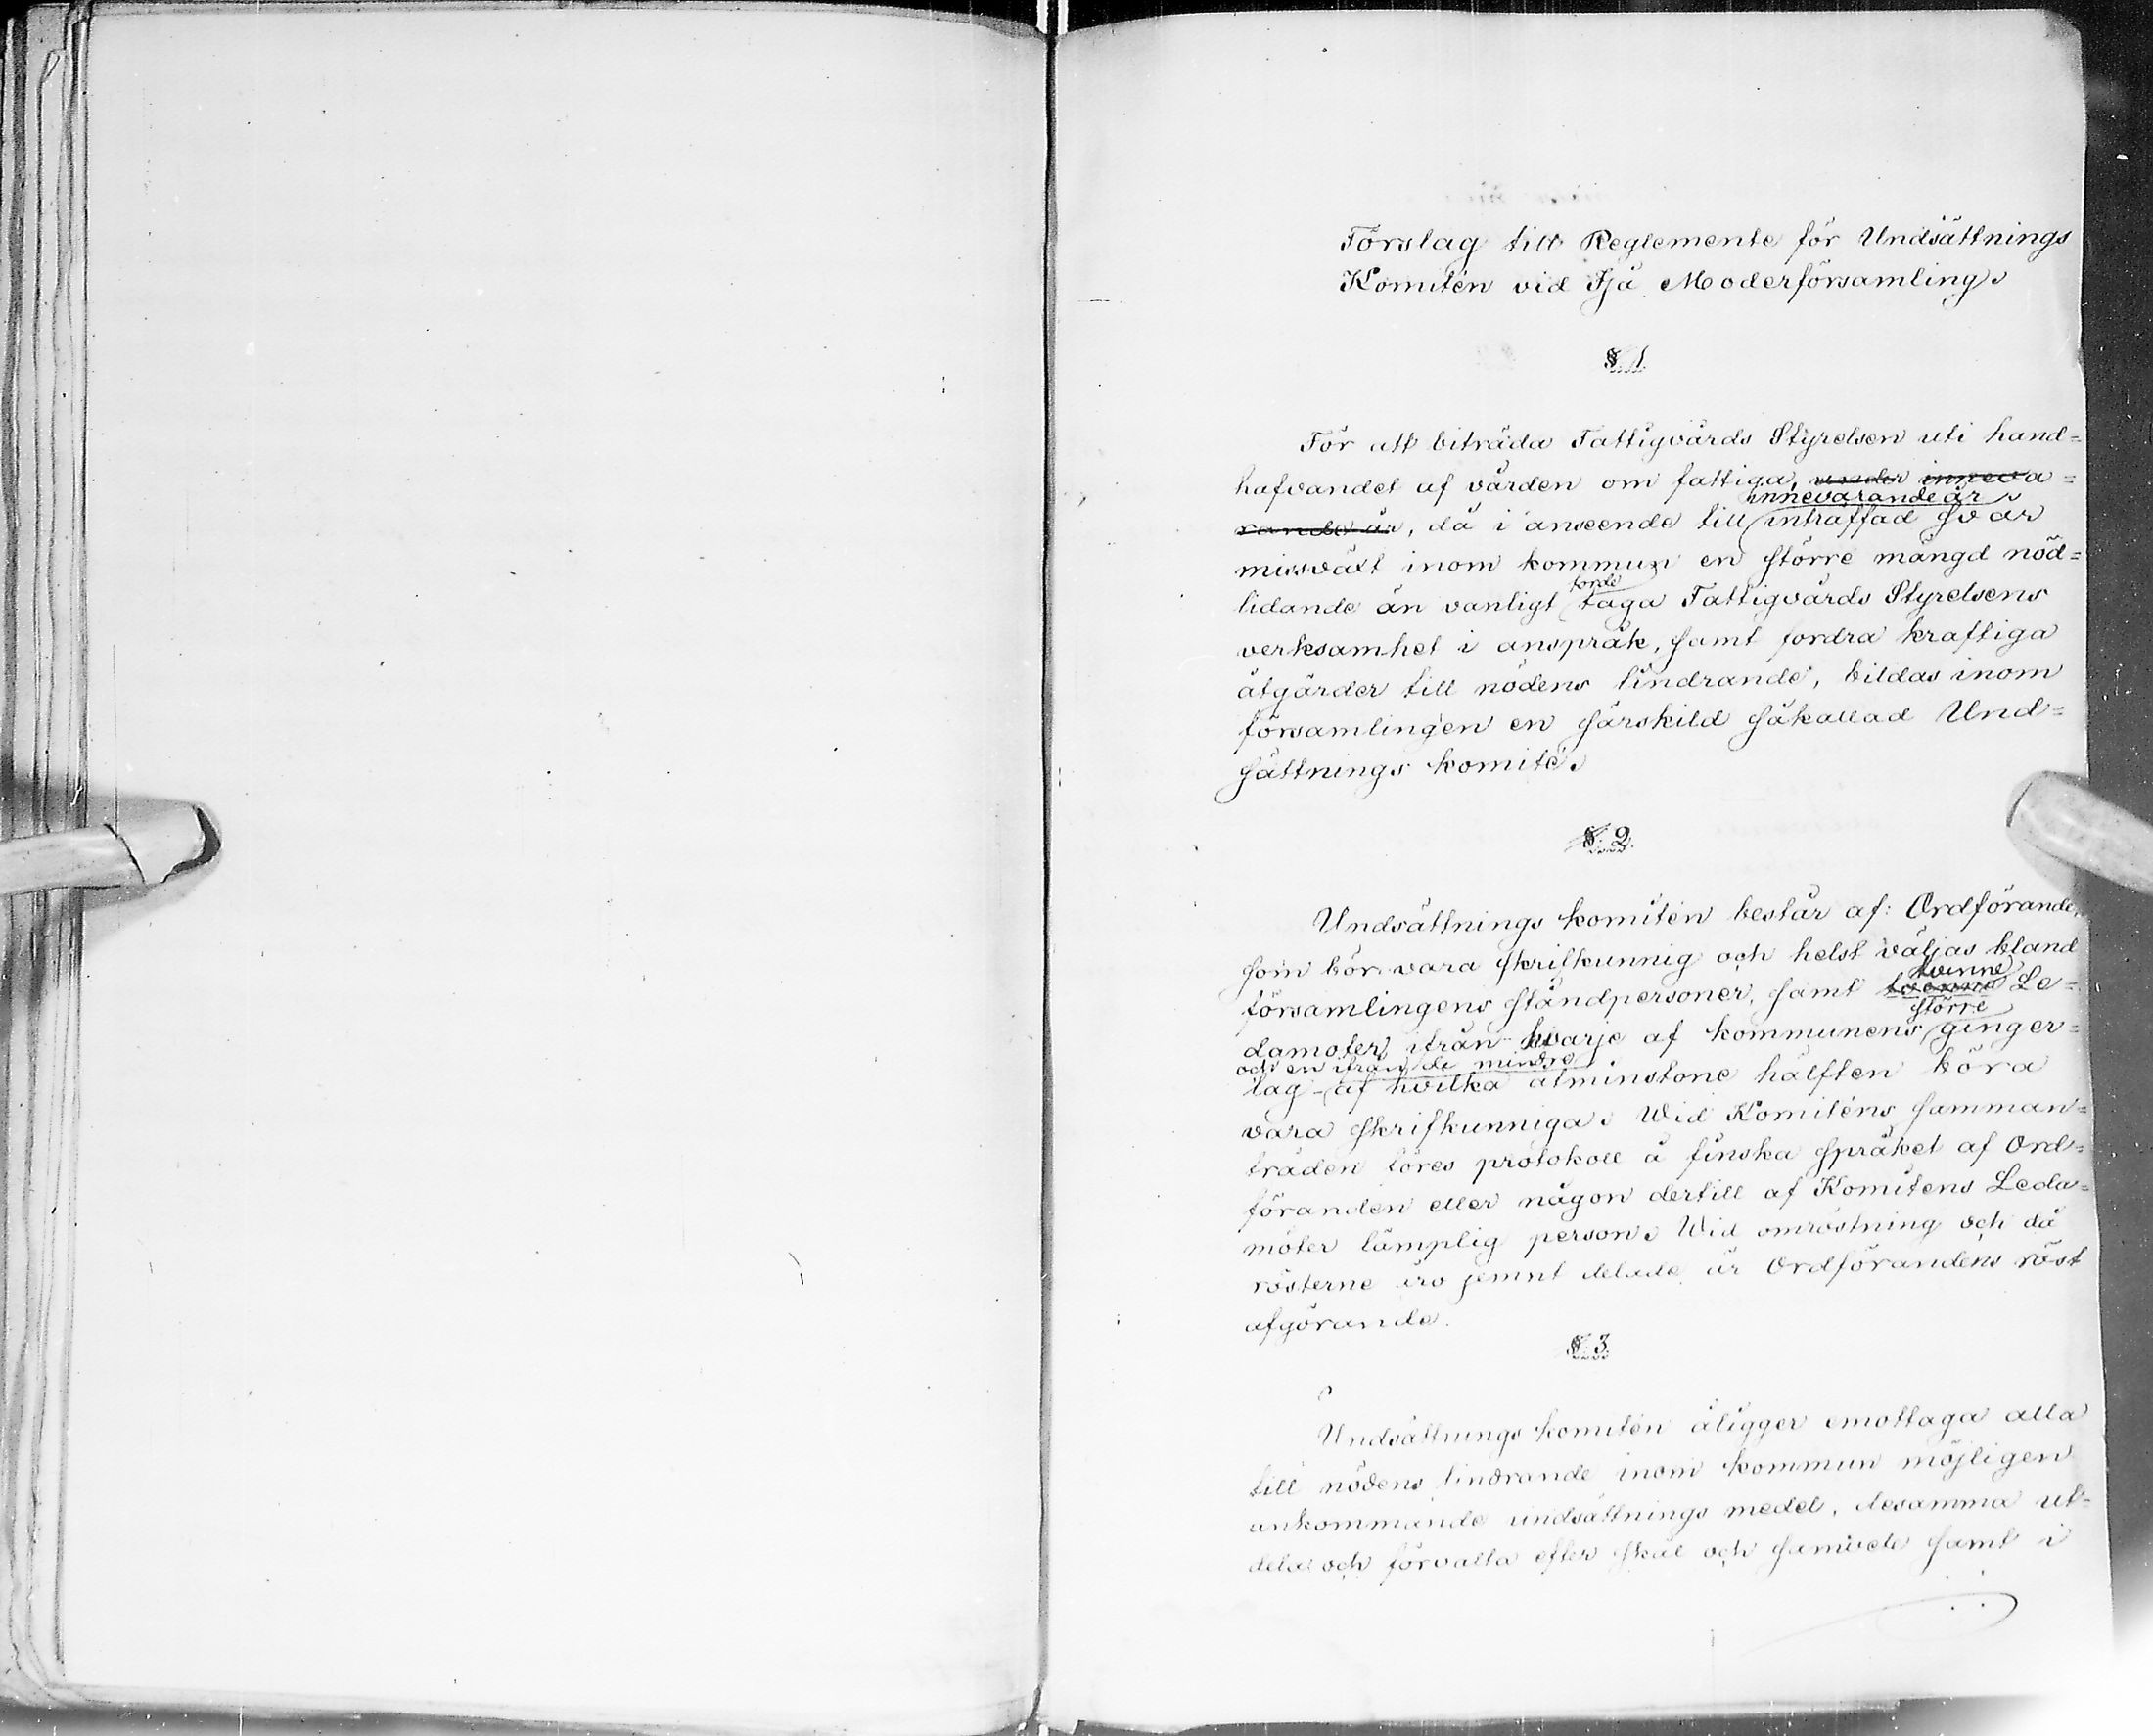 Förslag till Reglemente för Undsättnings
Komitén vid Ijå Moderförsamling.
§ 1
För att biträda Fattigvårds Styrelsen uti hand=
hafvandet af vården om fattiga, under inneva=
innevarande år
rande år, då i anseende till inträffad svår
missväxt inom kommun en större mängd nöd=
torde
lidande än vanligt taga Fattigvårds Styrelsens
verksamhet i anspråk, samt fordra kraftiga
åtgärder till nödens lindrande, bildas inom
församlingen en särskild såkallad Und=
sättnings komité.
§ 2.
Undsättnings komitén består af: Ordförande,
som bör vara skrifkunnig och helst väljas bland
tvenne
församlingens ståndpersoner, samt Le=
större
damoter ifrån hvarje af kommunens ginger=
och en ifrån de mindre
lag - af hvilka åtminstone hälften böra
vara skrifkunniga. Wid Komiténs samman=
träden föres protokoll å finska språket af Ord=
föranden eller någon dertill af Komiténs Leda=
möter lämplig person. Wid omröstning och då
rösterne äro jemnt delade är Ordförandens röst
afgörande.
§ 3.
Undsättnings komitén åligger emottaga alla
till nödens lindrande inom kommun möjligen
ankommande undsättnings medel, desamma ut=
dela och förvalta efter skäl och samvete samt i